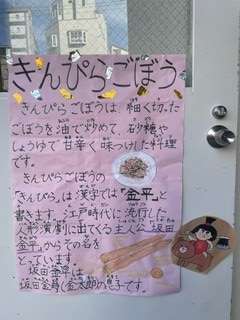 きんぴらごぼう
きんぴらごぼうは、細く切った
ごぼうを油で炒めて、砂糖や
しょうゆで甘辛く味つけた料理
です。
きんぴらごぼうの
「きんぴら」は、漢字では「金平」と
書きます。江戸時代に流行した
人形浄瑠璃に出てくる主人公「坂田
金平」からその名を
とっています。
坂田金平は、
坂田金時(金太郎)の息子です。